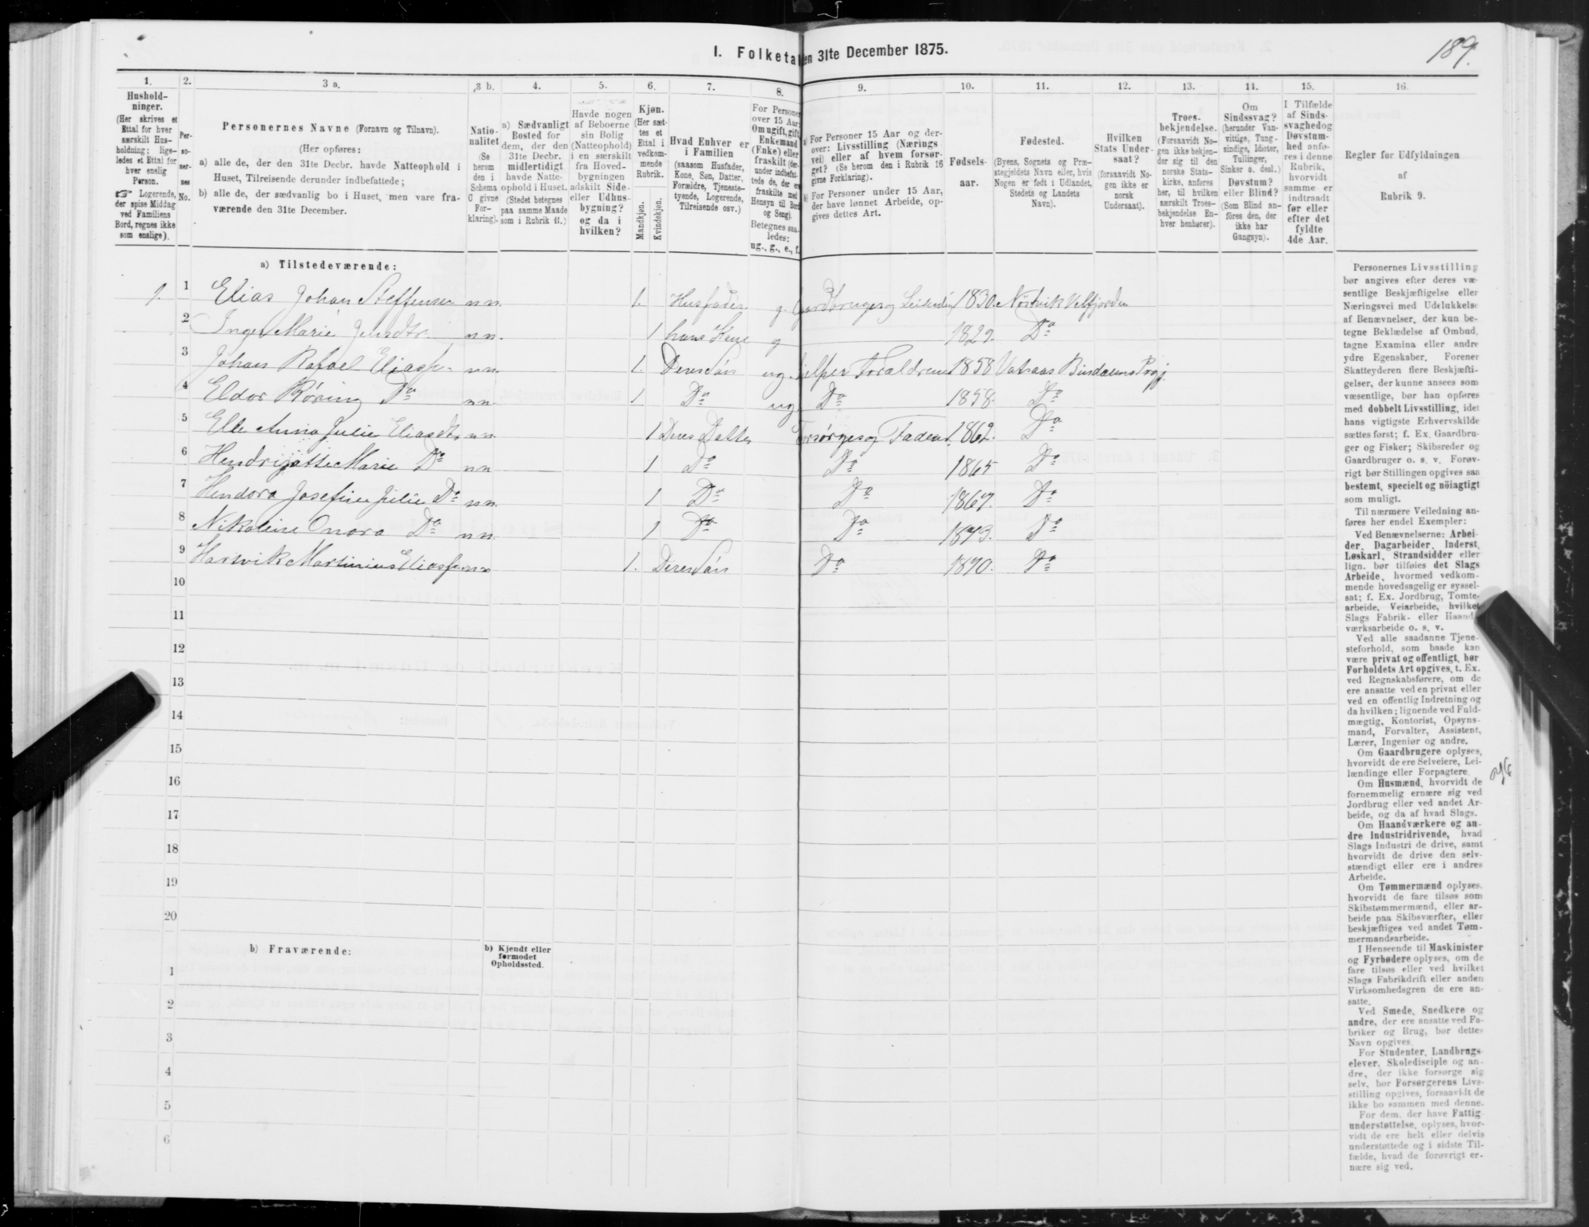 I. Folketa en 31te December 1875.
189.
1.
Hushold-
ninger.
(Her skrives et
Ettal for hver
særskilt Hus-
holdning; lige-
ledes et Ettal for
hver enslig
Person.
☞ Logerende,
der spise Middag
ved Familiens
Bord, regnes ikke
som enslige).
2.
Per-
so-
ner-
nes
No.
3 a.
Personernes Navne (Fornavn og Tilnavn).
(Her opføres:
a) alle de, der den 31te Decbr. havde Natteophold i
Huset, Tilreisende derunder indbefattede;
b) alle de, der sædvanlig bo i Huset, men vare fra-
værende den 31te December.
3 b.
Natio-
nalitet
(Se
herom
den i
Schema
O givne
For-
klaring).
4.
a) Sædvanligt
Bosted for
dem, der den
31te Decbr.
midlertidigt
havde Natte-
ophold i Huset.
(Stedet betegnes
paa samme Maade
som i Rubrik 11.)
5.
Havde nogen
af Beboerne
sin Bolig
(Natteophold)
i en særskilt
fra Hoved-
bygningen
adskilt Side-
eller Udhus-
bygning?
og da i
hvilken?
6.
Kjøn.
(Her sæt-
tes et
Ettal i
vedkom-
mende
Rubrik.
Mandkjøn.
Kvindekjøn.
7.
Hvad Enhver er
i Familien
(saasom Husfader,
Kone, Søn, Datter,
Forældre, Tjeneste-
tyende, Logerende,
Tilreisende osv.)
8.
For Persone
over 15 Aar:
Om ugift, gift,
Enkemand
(Enke) eller
fraskilt
Hensyn til Bord
og Seng).
Betegnes saa-
ledes:
ug., g., e., f.
9.
For Personer 15 Aar og der-
over: Livsstilling (Nærings-
vei) eller af hvem forsør-
get? (Se herom den i Rubrik 16
givne Forklaring).
For Personer under 15 Aar,
der have lønnet Arbeide, op-
gives dettes Art.
10.
Fødsels-
aar.
11.
Fødested.
(Byens, Sognets og Præ-
stegjeldets Navn eller, hvis
Nogen er født i Udlandet,
Stedets og Landets
Navn).
12.
Hvilken
Stats Under-
saat?
(foraavidt No-
gen ikke er
norsk
Undersaat).
13.
Troes-
bekjendelse.
(Foraavidt No-
gen ikke bekjen-
der sig til den
norske Stats-
kirke, anføres
her, til hvilken
særskilt Troes-
bekjendelse En-
hver henhører).
14.
Om
Sindssvag?
(herunder Van-
vittige, Tung-
sindige, Idioter,
Tullinger,
Sinker o. desl.)
Døvstum?
eller Blind?
(Som Blind an-
føres den, der
ikke har
Gangsyn).
15.
I Tilfælde
af Sinds-
svaghed og
Døvstum-
hed anfø-
res i denne
Rubrik,
hvorvidt
samme er
indtraadt
før eller
efter det
fyldte
4de Aar.
16.
Regler for Udfyldningen
af
Rubrik 9.
a) Tilstedeværende:
1. 1 Elias Johan Steffensen n n. 1. Husfader g. Gaardbruger og Leilending 1830. Nordvik Velfjorden
2 Inger Marie Jensdtr. n n. 1 hans Kone g 1829. Do
3 Johan Rafael Eliass. n n. 1. Deres Søn ug. hjelper Foraldrene 1858 Vatsaas Bindalens Prgj.
4 Eldor Røring Do n n. 1 Do ug Do 1858. Do
5 Elle Anna Julie Eliasdtr n n. 1 Deres Datter Forsørges og Faderen 1862. Do
6 Hendrijette Marie Do n n 1 Do Do 1865 Do
7 Hendora Josefine Julie Do n n. 1 Do Do 1867. Do
8 Nikoline Onora Do n n 1 Do Do 1873. Do
9 Hartvik Martinius Eliass n n 1. Deres Søn Do 1870. Do
10
11
12
13
14
15
16
17
18
19
20
b) Fraværende:
b) Kjendt eller
formodet
Opholdssted.
1
2
3
4
5
6
Personernes Livsstilling
bør angives efter deres væ-
sentlige Beskjæftigelse eller
Næringsvei med Udelukkelse
af Benævnelser, der kun be-
tegne Beklædelse af Ombud,
tagne Examina eller andre
ydre Egenskaber. Forener
Skatteyderen flere Beskjæfti-
gelser, der kunne ansees som
væsentlige, bør han opføres
med dobbelt Livsstilling, idet
hans vigtigste Erhvervskilde
sættes først; f. Ex. Gaardbru-
ger og Fisker; Skibsreder og
Gaardbruger o. s. v. Forøv-
rigt bør Stillingen opgives saa
bestemt, specielt og nöiagtigt
som muligt.
Til nærmere Veiledning an-
føres her endel Exempler:
Ved Benævnelserne: Arbei-
der, Dagarbeider, Inderst,
Løskarl, Strandsidder eller
lign. bør tilføies det Slags
Arbeide, hvormed vedkom-
mende hovedsagelig er syssel-
sat; f. Ex. Jordbrug, Tomte-
arbeide, Veiarbeide, hvilket
Slags Fabrik- eller Haand-
værksarbeide o. s. v.
Ved alle saadanne Tjene-
steforhold, som baade kan
være privat og offentligt, bør
Forholdets Art opgives, t. Ex.
ved Regnskabsførere, om de
ere ansatte ved en privat eller
ved en offentlig Indretning og
da hvilken; lignende ved Fuld-
mægtig, Kontorist, Opsyns-
mand, Forvalter, Assistent,
Lærer, Ingeniør og andre.
Om Gaardbrugere oplyses,
hvorvidt de ere Selveiere, Lei-
lændinge eller Forpagtere.
Om Husmænd, hvorvidt de
fornemmelig ernære sig ved
Jordbrug eller ved andet Ar-
beide, og da af hvad Slags.
Om Haandværkere og an-
dre Industridrivende, hvad
Slags Industri de drive, samt
hvorvidt de drive den selv-
stændigt eller ere i andres
Arbeide.
Om Tømmermænd oplyses,
hvorvidt de fare tilsøs som
Skibstømmermænd, eller ar-
beide paa Skibsværfter, eller
beskjæftiges ved andet Tøm-
mermandsarbeide.
I Henseende til Maskinister
og Fyrbødere oplyses, om de
fare tilsøs eller ved hvilket
Slags Fabrikdrift eller anden
Virksomhedsgren de ere an-
satte.
Ved Smede, Snedkere og
andre, der ere ansatte ved Fa-
briker og Brug, bør dettes
Navn opgives.
For Studenter, Landbrugs-
elever, Skoledisciple og an-
dre, der ikke forsørge sig
selv, bør Forsørgerens Livs-
stilling opgives, forsaavidt de
ikke bo sammen med denne.
For dem, der have Fattig-
understøttelse, oplyses, hvor-
vidt de ere helt eller delvis
understøttede og i sidste Til-
fælde, hvad de forøvrigt er-
nære sig ved.